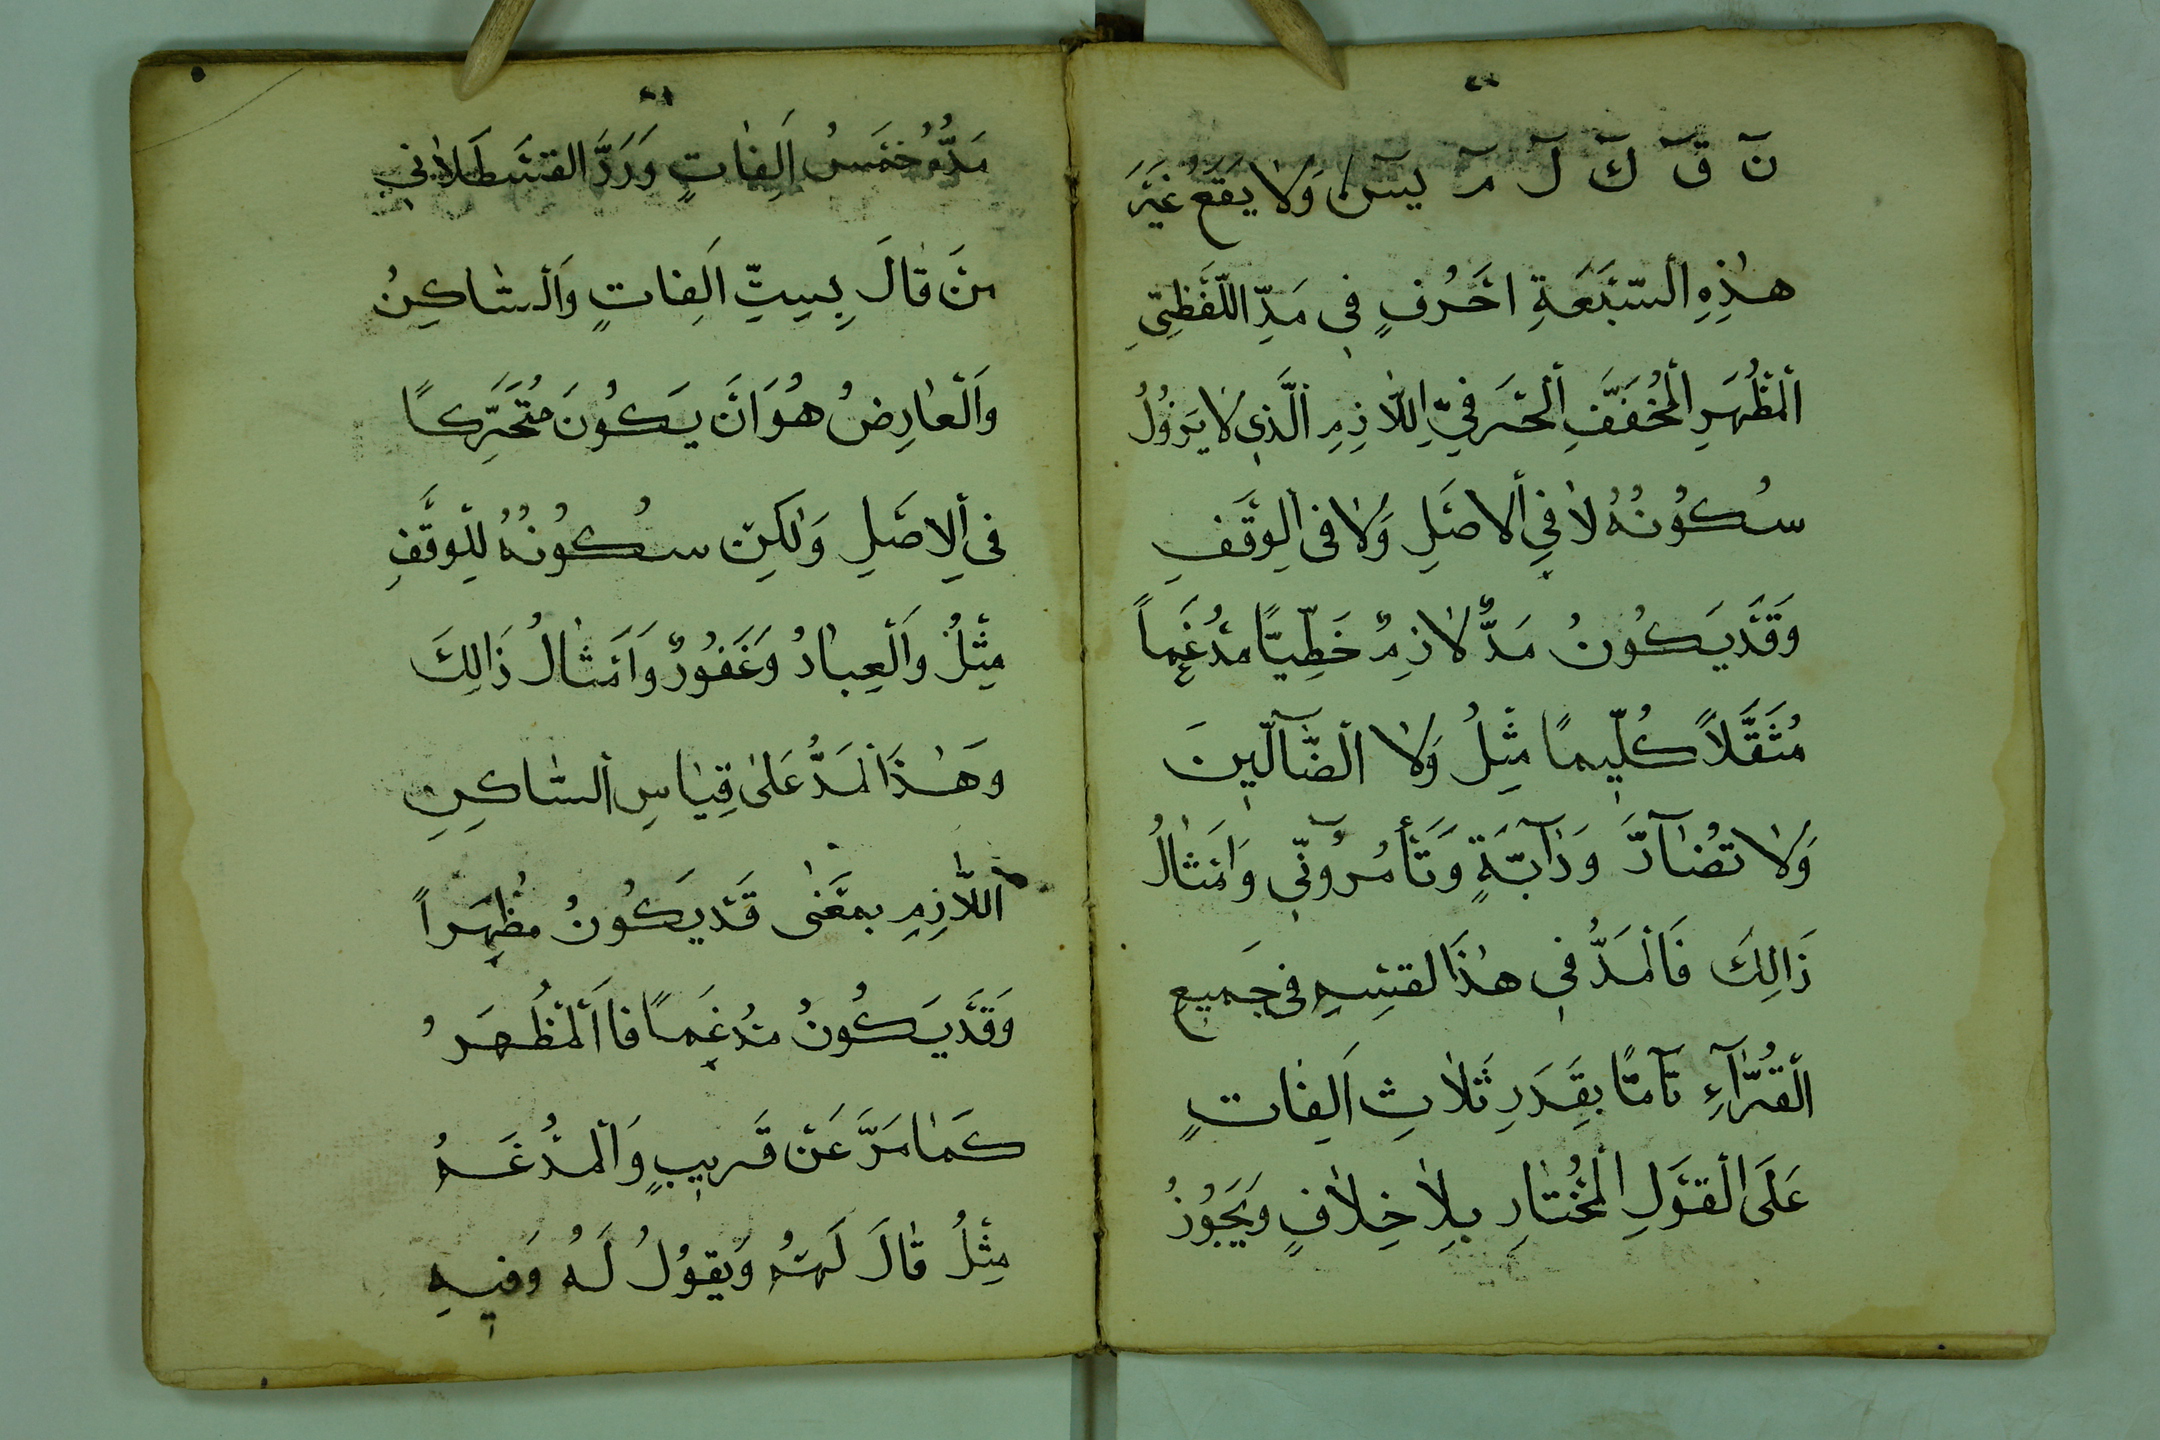 نٓ قٓ كٓ لٓ مٓ يسٓ وَلَا يَقَعُ غَيْرَ
هٰذِهِ السَّبْعَةِ احْرُفٍ فِي مَدِّ اللَّفْظِيِّ
اَلْمُظْهَرِ الْمُخَفَّفِ اَلْحَرْفِيِّ اِللَّازِمِ اَلَّذِي لَا يَزُوْلُ
سُكُوْنُهُ لَا فِي اَلْاصْلِ وَلَا فِى الْوَقْفِ
وَقَدْ يَكُوْنُ مَدٌّ لَازِمٌ خَطِّيًّا مُدْغَمًا
مُثَقَّلًا كُلِّيمًا مِثْلُ وَلَا اَلضَّآلِّينَ
وَلَا تُضَآرَّ وَدَآبَّةٍ وَتَأْمُرُوٓنِّي وَاَمْثَالُ
ذَالِكَ فَالْمَدُّ فِي هٰذَالقِسْمِ فِى جَمِيعِ
اَلْقُرَّآءِ تَآمًّا بِقَدَرِ ثَلَاثِ اَلِفَاتٍ
عَلَى الْقَوْلِ الْمُخْتَارِ بِلَا خِلَافٍ وَيَجُوْزُ
مَدُّهُ خَمْسُ اَلِفَاتٍ وَرَدَّ القَسْطَلَانِي
مَنْ قَالَ بِسِتِّ اَلِفَاتٍ وَالسَّاكِنُ
وَاَلْعَارِضُ هُوَ اَنْ يَكُوْنَ مُتَحَرِّكًا
فِى اَلِاصْلِ وَلٰكِنْ سُكُوْنُهُ لِلْوَقْفِ
مِثْلُ وَاَلْعِبَادُ وَغَفُوْرٌ وَاَمْثَالُ ذَالِكَ
وَهٰذَا لْمَدُّ عَلٰى قِيَاسِ اَلسَّاكِنِ
اَللَّازِمِ بِمَعْنٰى قَدْ يَكُوْنُ مُظْهَرًا
وَقَدْ يَكُوْنُ مُدْغَمًا فَااَلْمُظْهَرُ
كَمَا مَرَّ عَنْ قَرِيبٍ وَاَلْمُدْغَمُ
مِثْلُ قَالَ لَهُمْ وَيَقُوْلُ لَهُ وَفِيهِ